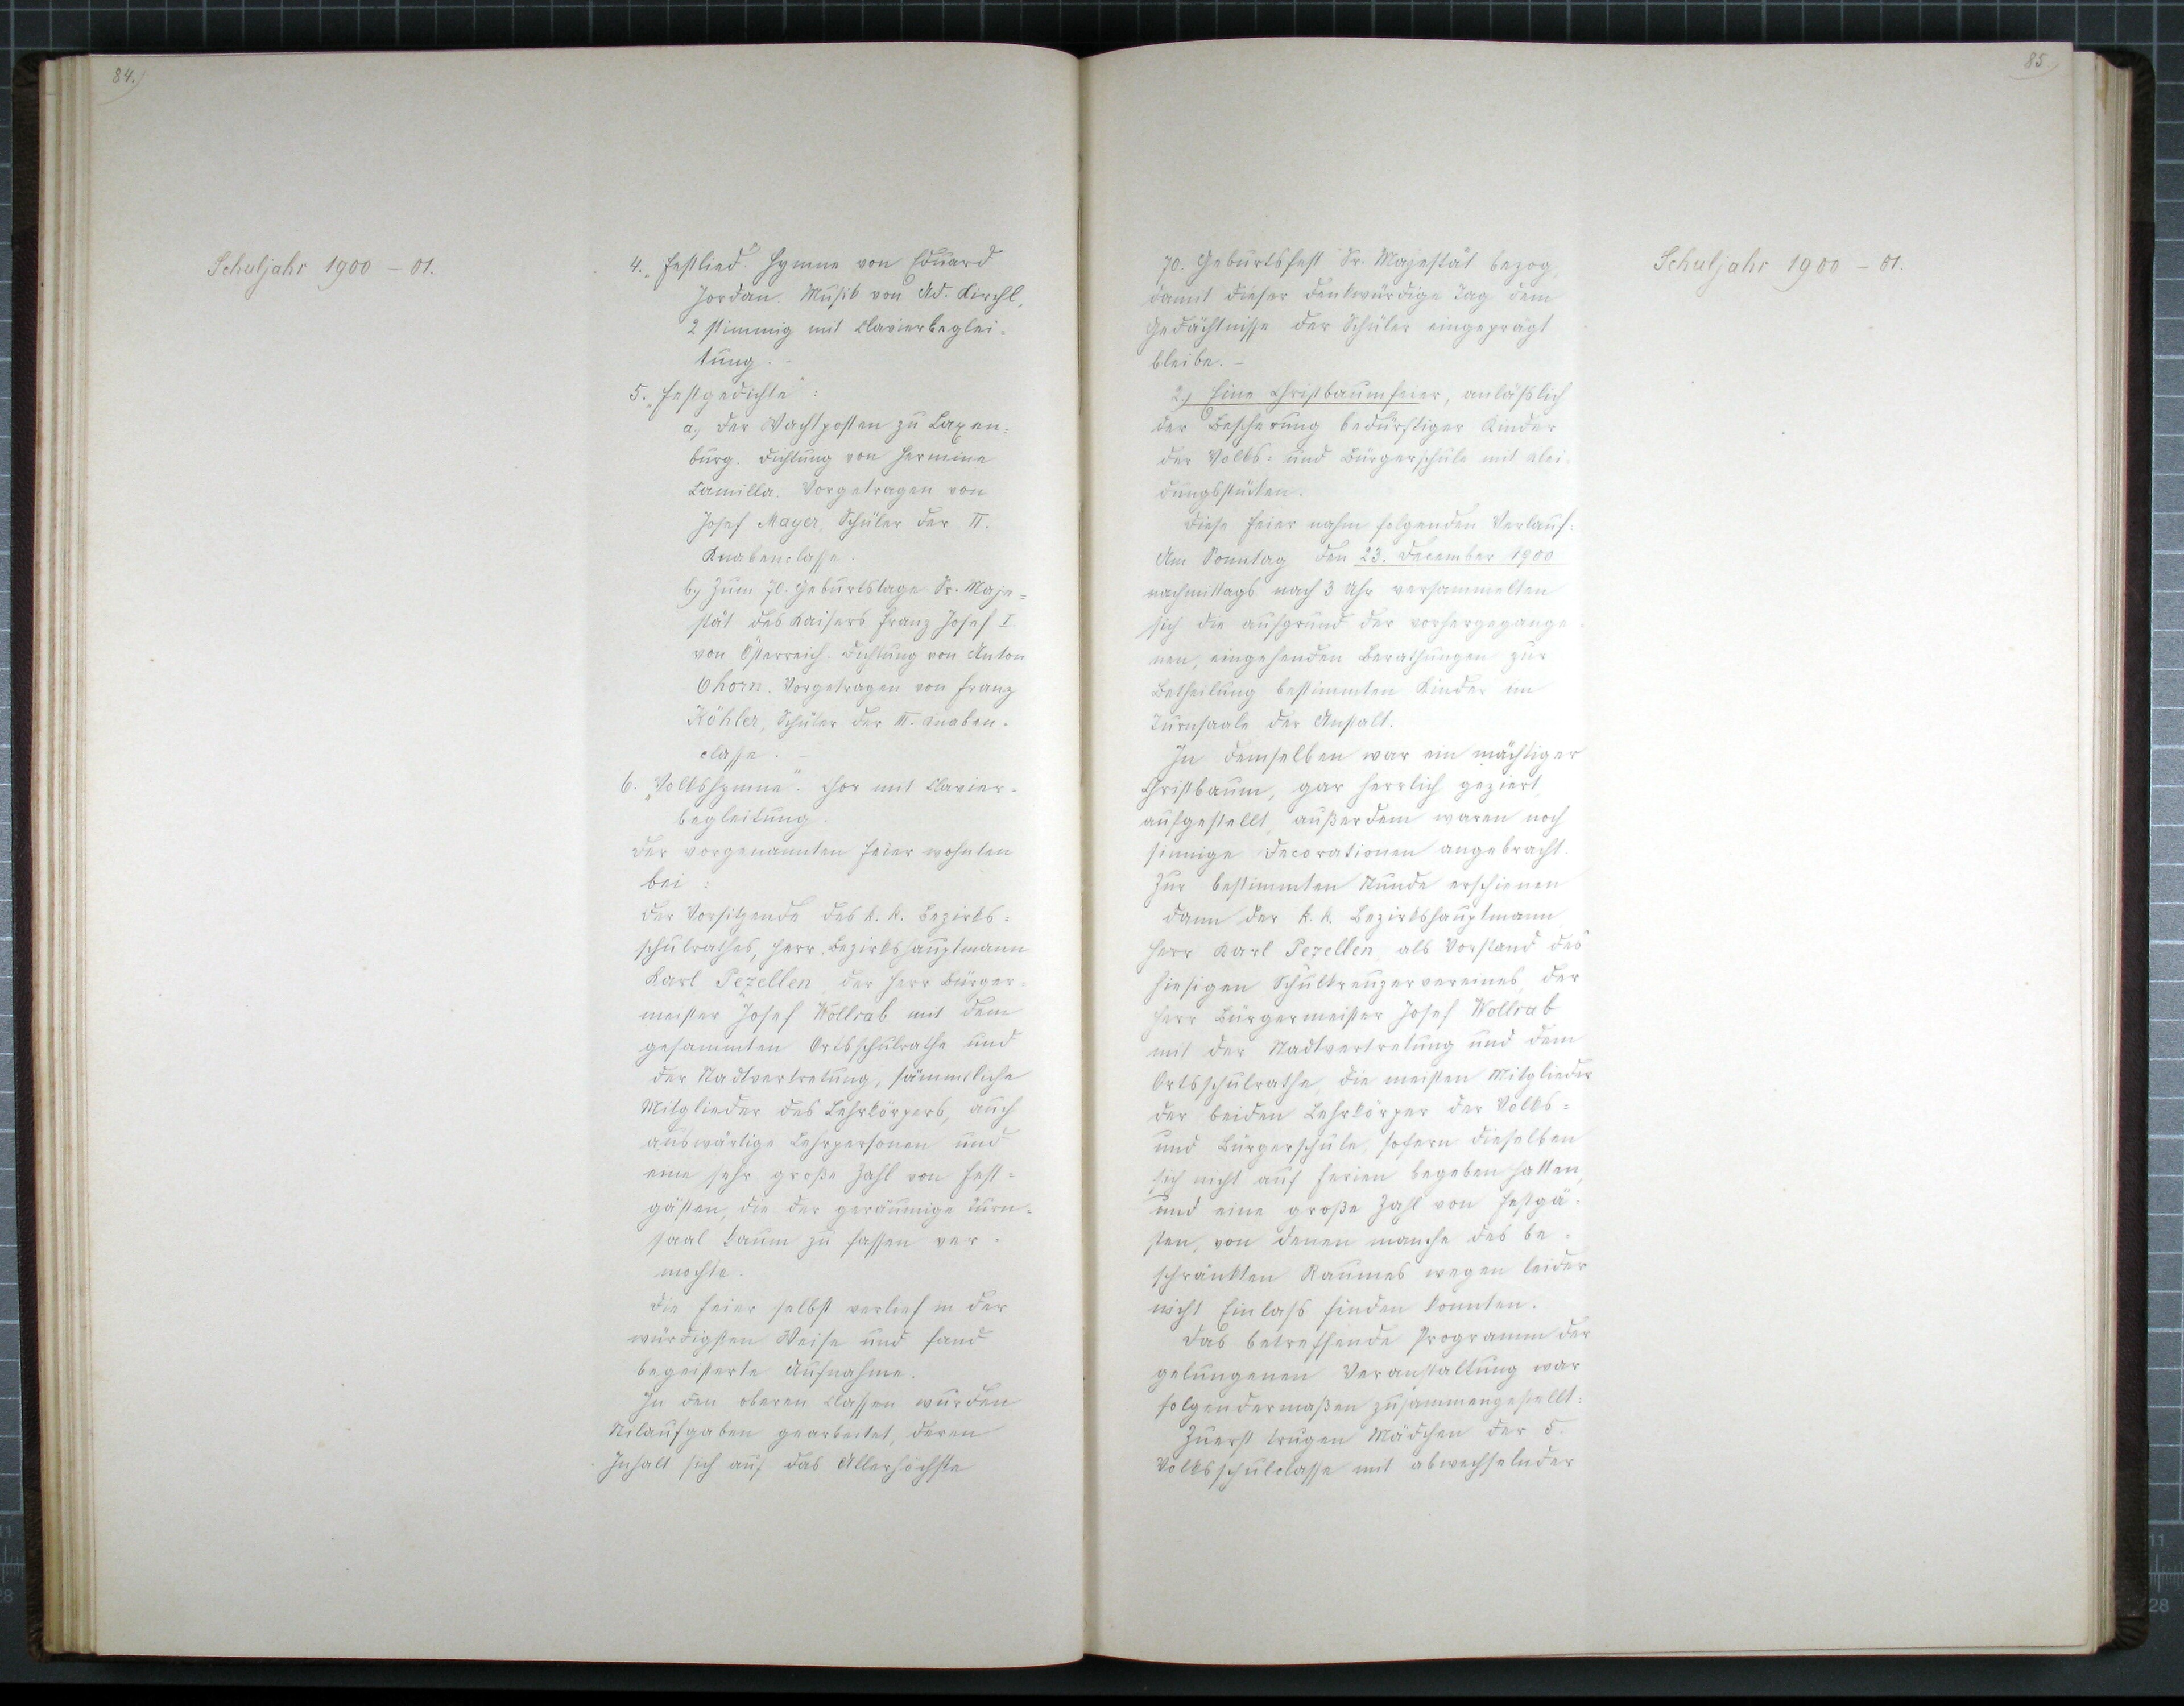 84.
Schuljahr 1900 – 01.
4. „Festlied". Hymne von Eduard
Jordan. Musik von Ad. Kirchl,
2 stimmig mit Clavierbeglei=
tung. –
5. „Festgedichte":
a.) Der Wachtposten zu Laxen=
burg. Dichtung von Hermine
Camilla. Vorgetragen von
Josef Mayer, Schüler der II.
Knabenclasse.
b.) Zum 70. Geburtstage Sr. Maje=
stät des Kaisers Franz Josef I.
von Österreich. Dichtung von Anton
Ohorn. Vorgetragen von Franz
Köhler, Schüler der II. Knaben=
classe. –
6. „Volkshymne". Chor mit Clavier=
begleitung.
Der vorgenannten Feier wohnten
bei:
Der Vorsitzende des k. k. Bezirks=
schulrathes, Herr Bezirkshauptmann
Karl Pezellen, der Herr Bürger=
meister Josef Wollrab mit dem
gesammten Ortsschulrathe und
der Stadtvertretung, sämmtliche
Mitglieder des Lehrkörpers, auch
auswärtige Lehrpersonen und
eine sehr große Zahl von Fest=
gästen, die der geräumige Turn=
saal kaum zu fassen ver=
mochte.
Die Feier selbst verlief in der
würdigsten Weise und fand
begeisterte Aufnahme.
In den oberen Classen wurden
Stilaufgaben gearbeitet, deren
Inhalt sich auf das Allerhöchste
85.
Schuljahr 1900 – 01.
70. Geburtsfest Sr. Majestät bezog,
damit dieser denkwürdige Tag dem
Gedächtnisse der Schüler eingeprägt
bleibe. –
2.) Eine Christbaumfeier, anläßlich
der Bescherung bedürftiger Kinder
der Volks= und Bürgerschule mit Klei=
dungsstücken.
Diese Feier nahm folgenden Verlauf:
Am Sonntag den 23. December 1900
nachmittags nach 3 Uhr versammelten
sich die aufgrund der vorhergegange=
nen, eingehenden Berathungen zur
Betheilung bestimmten Kinder im
Turnsaale der Anstalt.
In demselben war ein mächtiger
Christbaum, gar herrlich geziert,
aufgestellt, außerdem waren noch
sinnige Decorationen angebracht.
Zur bestimmten Stunde erschienen
dann der k. k. Bezirkshauptmann
Herr Karl Pezellen, als Vorstand des
hiesigen Schulkreuzervereines, der
Herr Bürgermeister Josef Wollrab
mit der Stadtvertretung und dem
Ortsschulrathe, die meisten Mitglieder
der beiden Lehrkörper der Volks=
und Bürgerschule, sofern dieselben
sich nicht auf Ferien begeben hatten,
und eine große Zahl von Festgä=
sten, von denen manche des be=
schränkten Raumes wegen leider
nicht Einlass finden konnten.
Das betreffende Programm der
gelungenen Veranstaltung war
folgendermaßen zusammengestellt:
Zuerst trugen Mädchen der 5.
Volksschulclasse mit abwechselnder